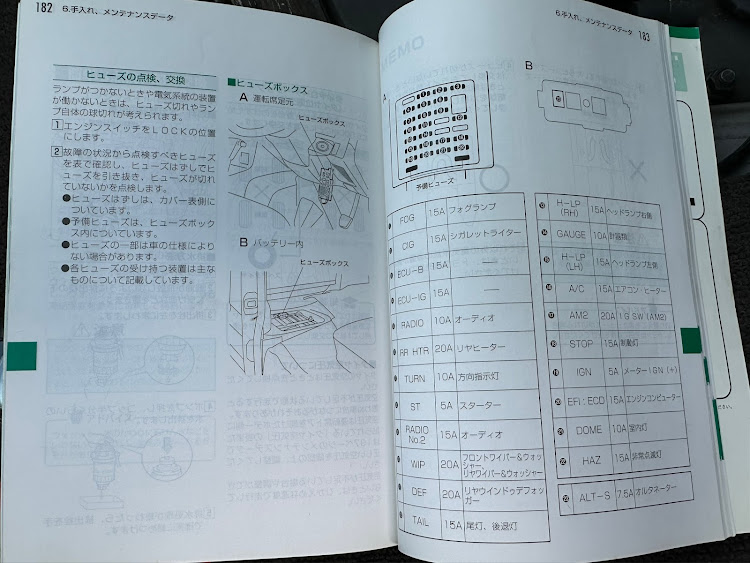 182 6.手入れ、メンテナンスデータ
ヒューズの点検、交換
ランプがつかないときや電気系統の装置
が働かないときは、ヒューズ切れやラン
プ自体の球切れが考えられます。
1 エンジンスイッチをLOCKの位置
にします。
2 故障の状況から点検すべきヒューズ
を表で確認し、ヒューズはずしでヒ
ューズを引き抜き、ヒューズが切れ
ていないかを点検します。
●ヒューズはずしは、カバー表側に
ついています。
●予備ヒューズは、ヒューズボック
ス内についています。
●ヒューズの一部は車の仕様により
ない場合があります。
●各ヒューズの受け持つ装置は主な
ものについて記載しています。
■ヒューズボックス
A 運転席足元
ヒューズボックス
B バッテリー内
ヒューズボックス
6.手入れ、メンテナンスデータ 183
A
予備ヒューズ
B
FOG 15A フォグランプ
CIG 15A シガレットライター
ECU-B 15A ―
ECU-IG 15A ―
RADIO 10A オーディオ
RR HTR 20A リヤヒーター
TURN 10A 方向指示灯
ST 5A スターター
RADIO
No.2 15A オーディオ
WIP 20A フロントワイパー&ウォッ
シャー、
リヤワイパー&ウォッシャー
DEF 20A リヤウインドゥデフォッ
ガー
TAIL 15A 尾灯、後退灯
⑬ H-LP
(RH) 15A ヘッドランプ右側
⑭ GAUGE 10A 計器類
⑮ H-LP
(LH) 15A ヘッドランプ左側
⑯ A/C 15A エアコン・ヒーター
⑰ AM2 20A IG SW (AM2)
⑱ STOP 15A 制動灯
⑲ IGN 5A メーターIGN (+)
⑳ EFI:ECD 15A エンジンコンピューター
㉑ DOME 10A 室内灯
㉒ HAZ 15A 非常点滅灯
㉓ ALT-S 7.5A オルタネーター